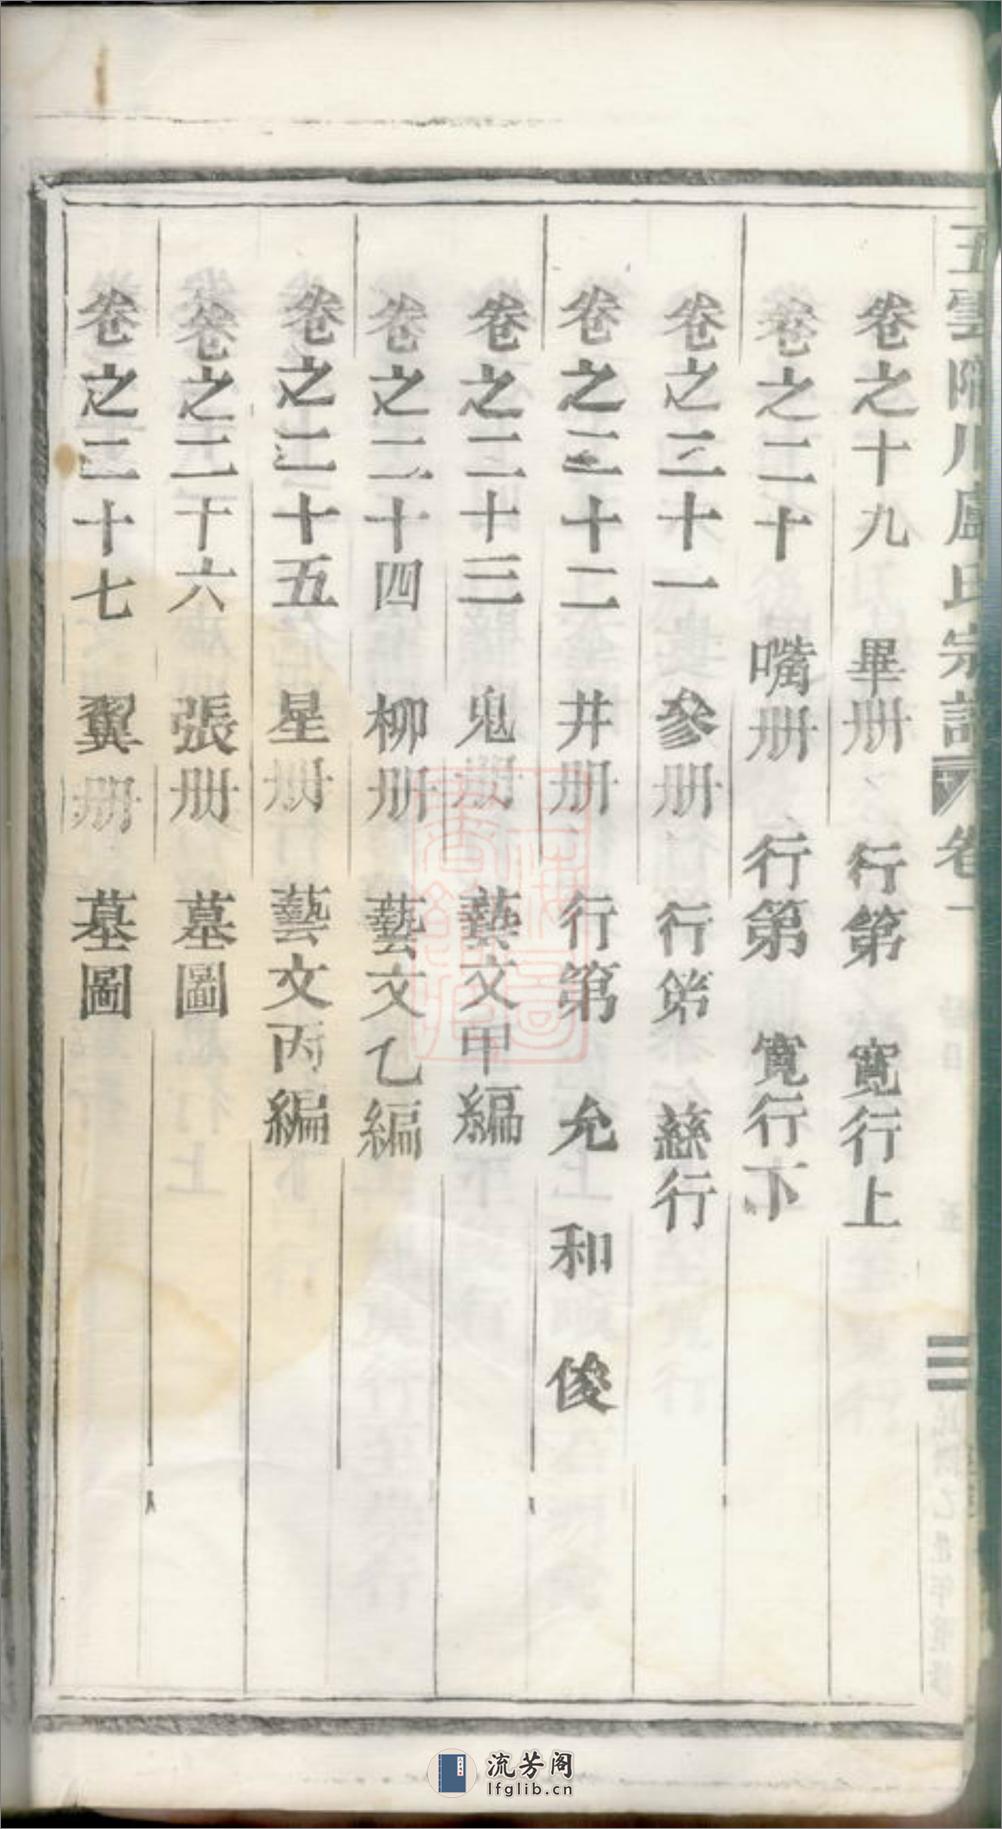 五雲隋川盧氏宗譜 卷一 總目 三
卷之十九 畢册 行第 寬行上
卷之二十 嘴册 行第 寬行下
卷之二十一 參册 行第 慈行
卷之二十二 井册 行第 允 和 俊
卷之二十三 鬼册 藝文甲編
卷之二十四 柳册 藝文乙編
卷之二十五 星册 藝文丙編
卷之二十六 張册 墓圖
卷之二十七 翼册 墓圖
流芳阁
lfglib.cn